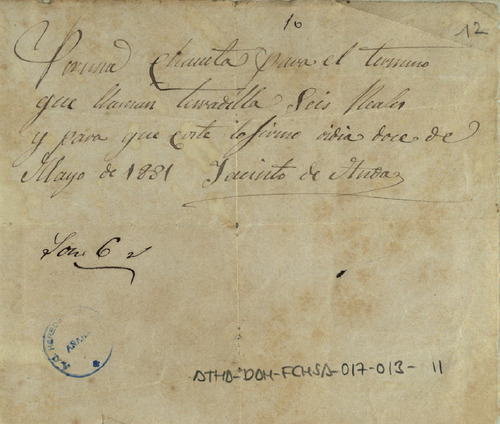 16
12
Por una Chaveta para el termino
que llaman terradilla Seis Reales
y para que coste lo firmo oi dia doce de
Mayo de 1831 Jacinto de
Son 6 r
ATHA-DAH-FCHSA-017-013-11